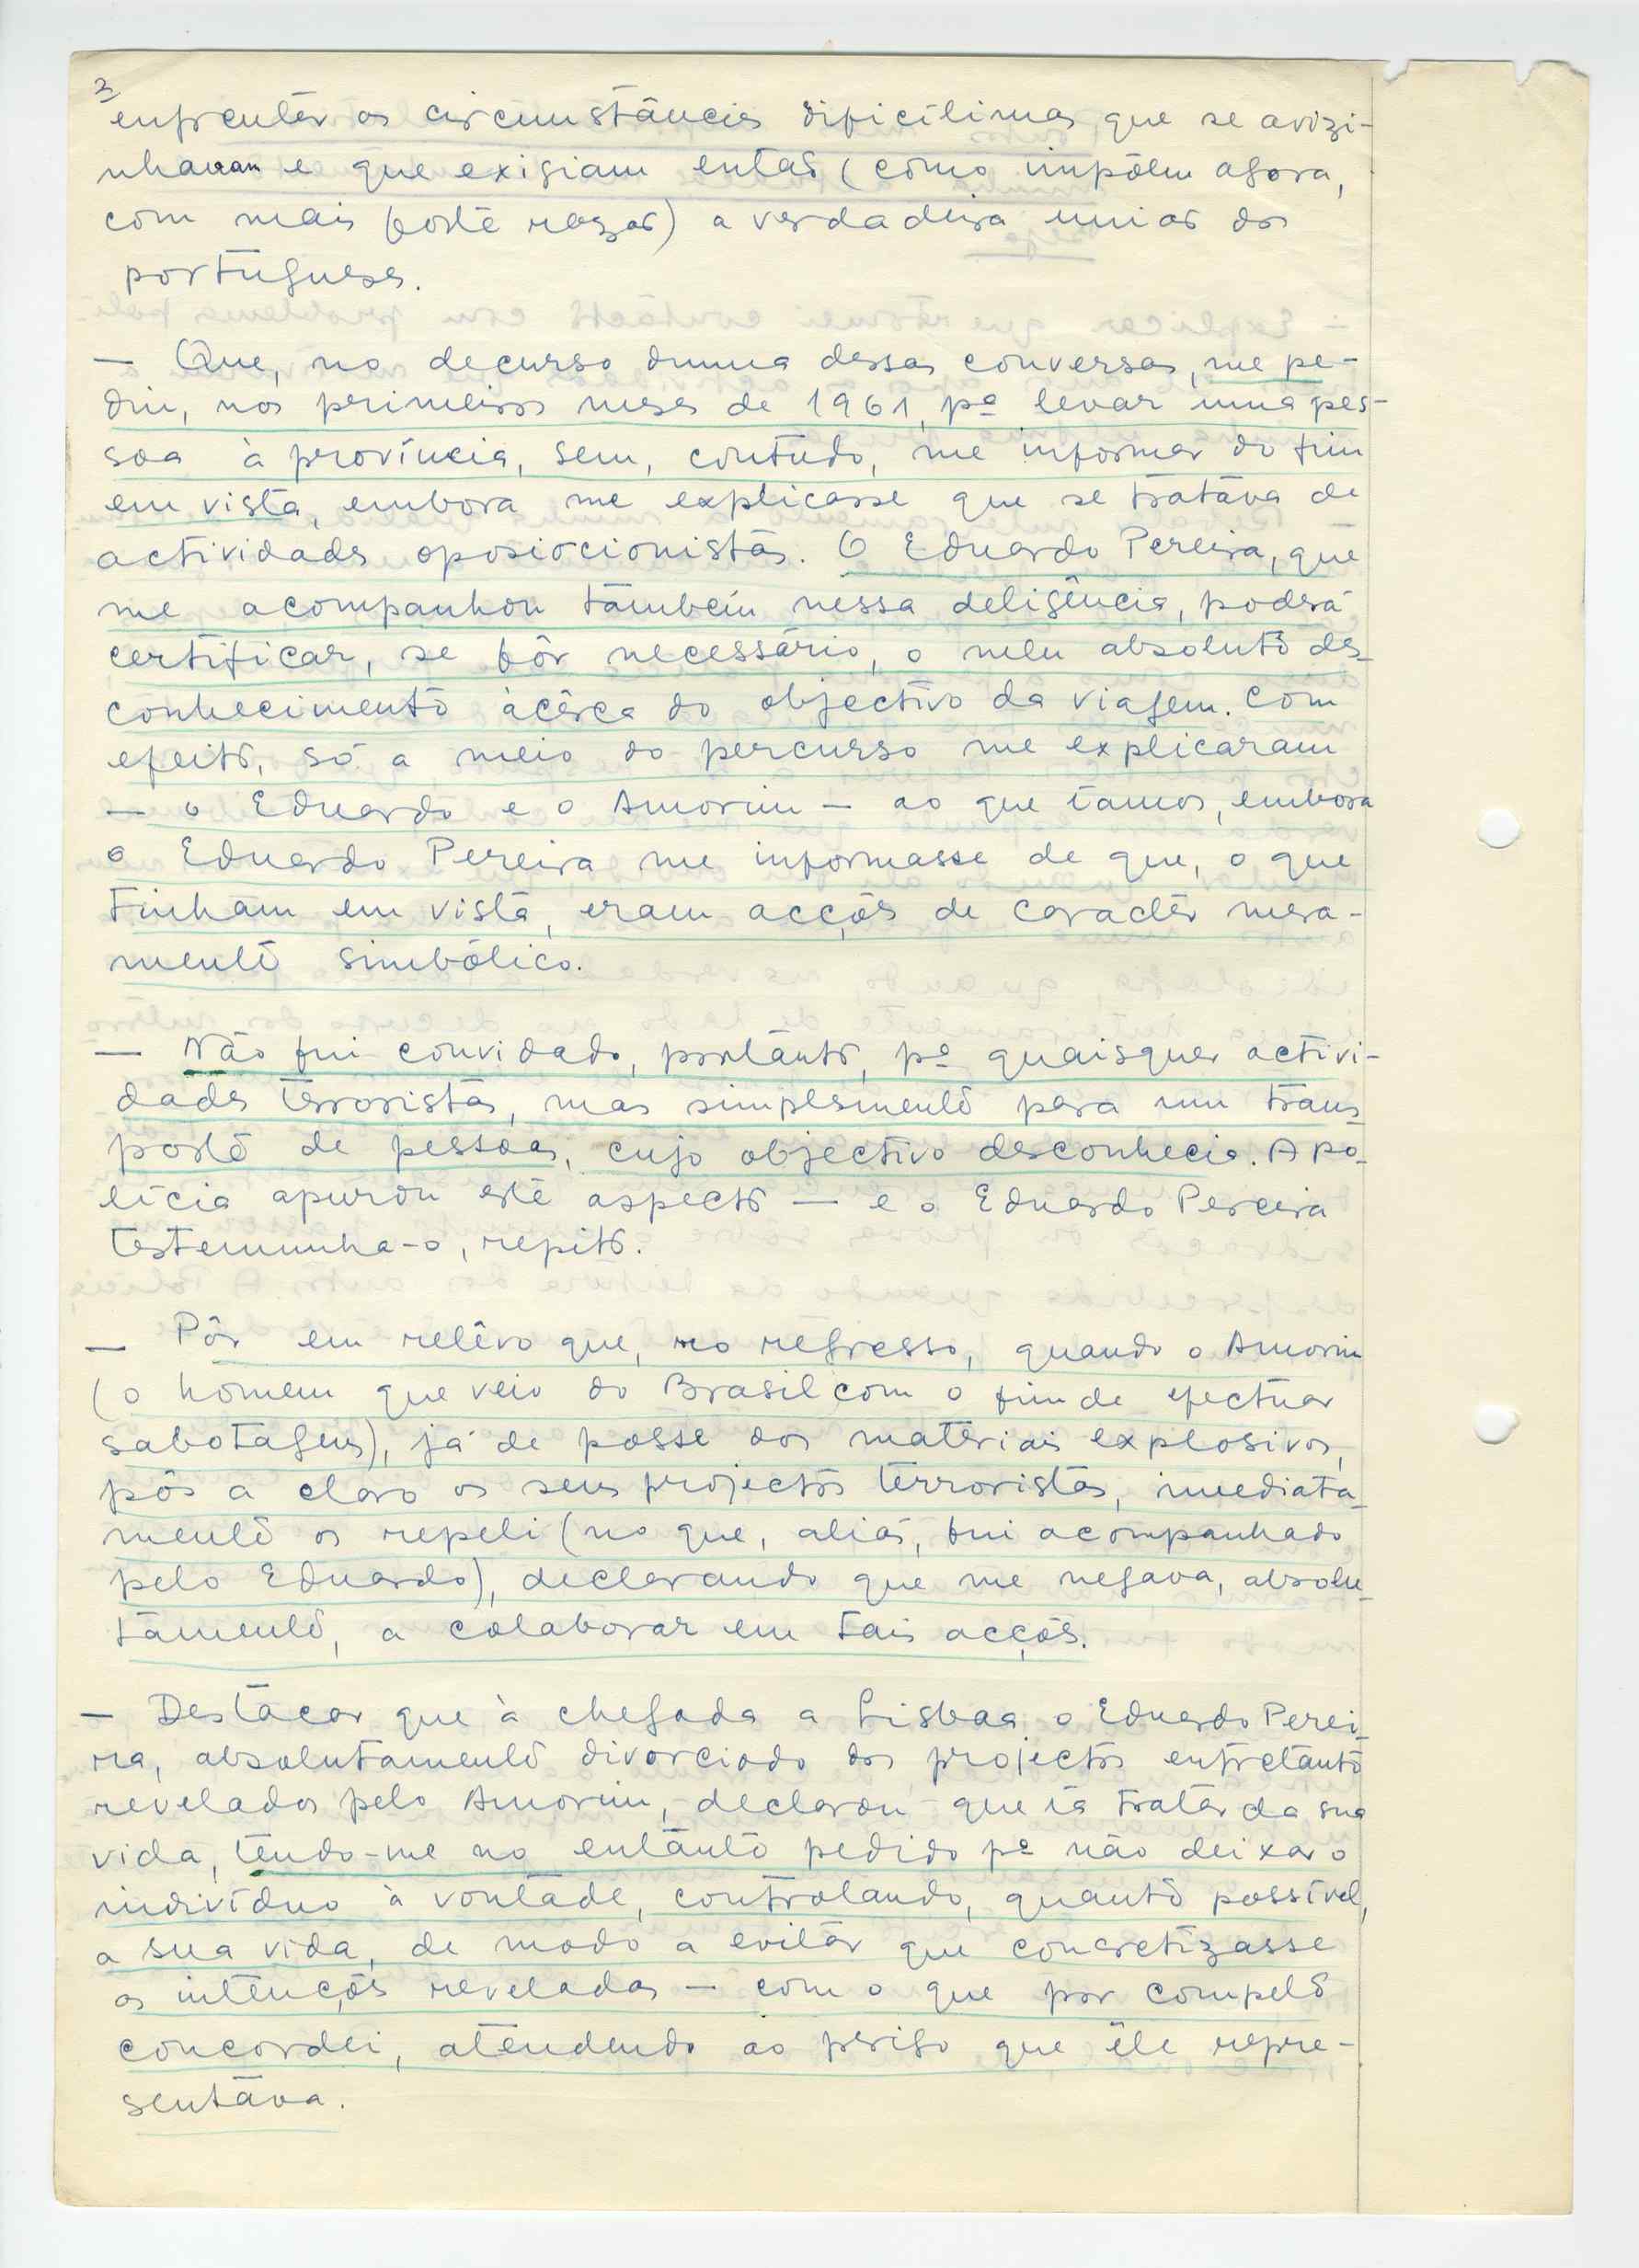 3
enfrentar as circunstâncias dificílimas que se avizi-
nhavam e que exigiam então (como impõem agora,
com mais forte razão) a verdadeira união dos
portugueses.
— Que, no decurso duma dessas conversas, me pe-
diu, nos primeiros meses de 1961, pª levar uma pes-
soa à província, sem, contudo, me informar do fim
em vista, embora me explicasse que se tratava de
actividades oposiocionistas. O Eduardo Pereira, que
me acompanhou também nessa deligência, poderá
certificar, se fôr necessário, o meu absoluto des-
conhecimento àcêrca do objectivo da viagem. Com
efeito, só a meio do percurso me explicaram
— o Eduardo e o Amorim — ao que íamos, embora
o Eduardo Pereira me informasse de que, o que
tinham em vista, eram acções de caracter mera-
mente simbólico.
— Não fui convidado, portanto, pª quaisquer activi-
dades terroristas, mas simplesmente para um trans-
porte de pessoas, cujo objectivo desconhecia. A po-
lícia apurou este aspecto — e o Eduardo Pereira
testemunha-o, repito.
— Pôr em relêvo que, no regresso, quando o Amorim
(o homem que veio do Brasil com o fim de efectuar
sabotagens), já de posse dos materiais explosivos,
pôs a claro os seus projectos terroristas, imediata-
mente os repeli (no que, aliás, fui acompanhado
pelo Eduardo), declarando que me negava, absolu-
tamente, a colaborar em tais acções.
— Destacar que à chegada a Lisboa o Eduardo Perei-
ra, absolutamente divorciado dos projectos entretanto
revelados pelo Amorim, declarou que ia tratar da sua
vida, tendo-me no entanto pedido pª não deixar o
indivíduo à vontade, controlando, quanto possível,
a sua vida, de modo a evitar que concretizasse
as intenções reveladas — com o que por completo
concordei, atendendo ao perigo que êle repre-
sentava.